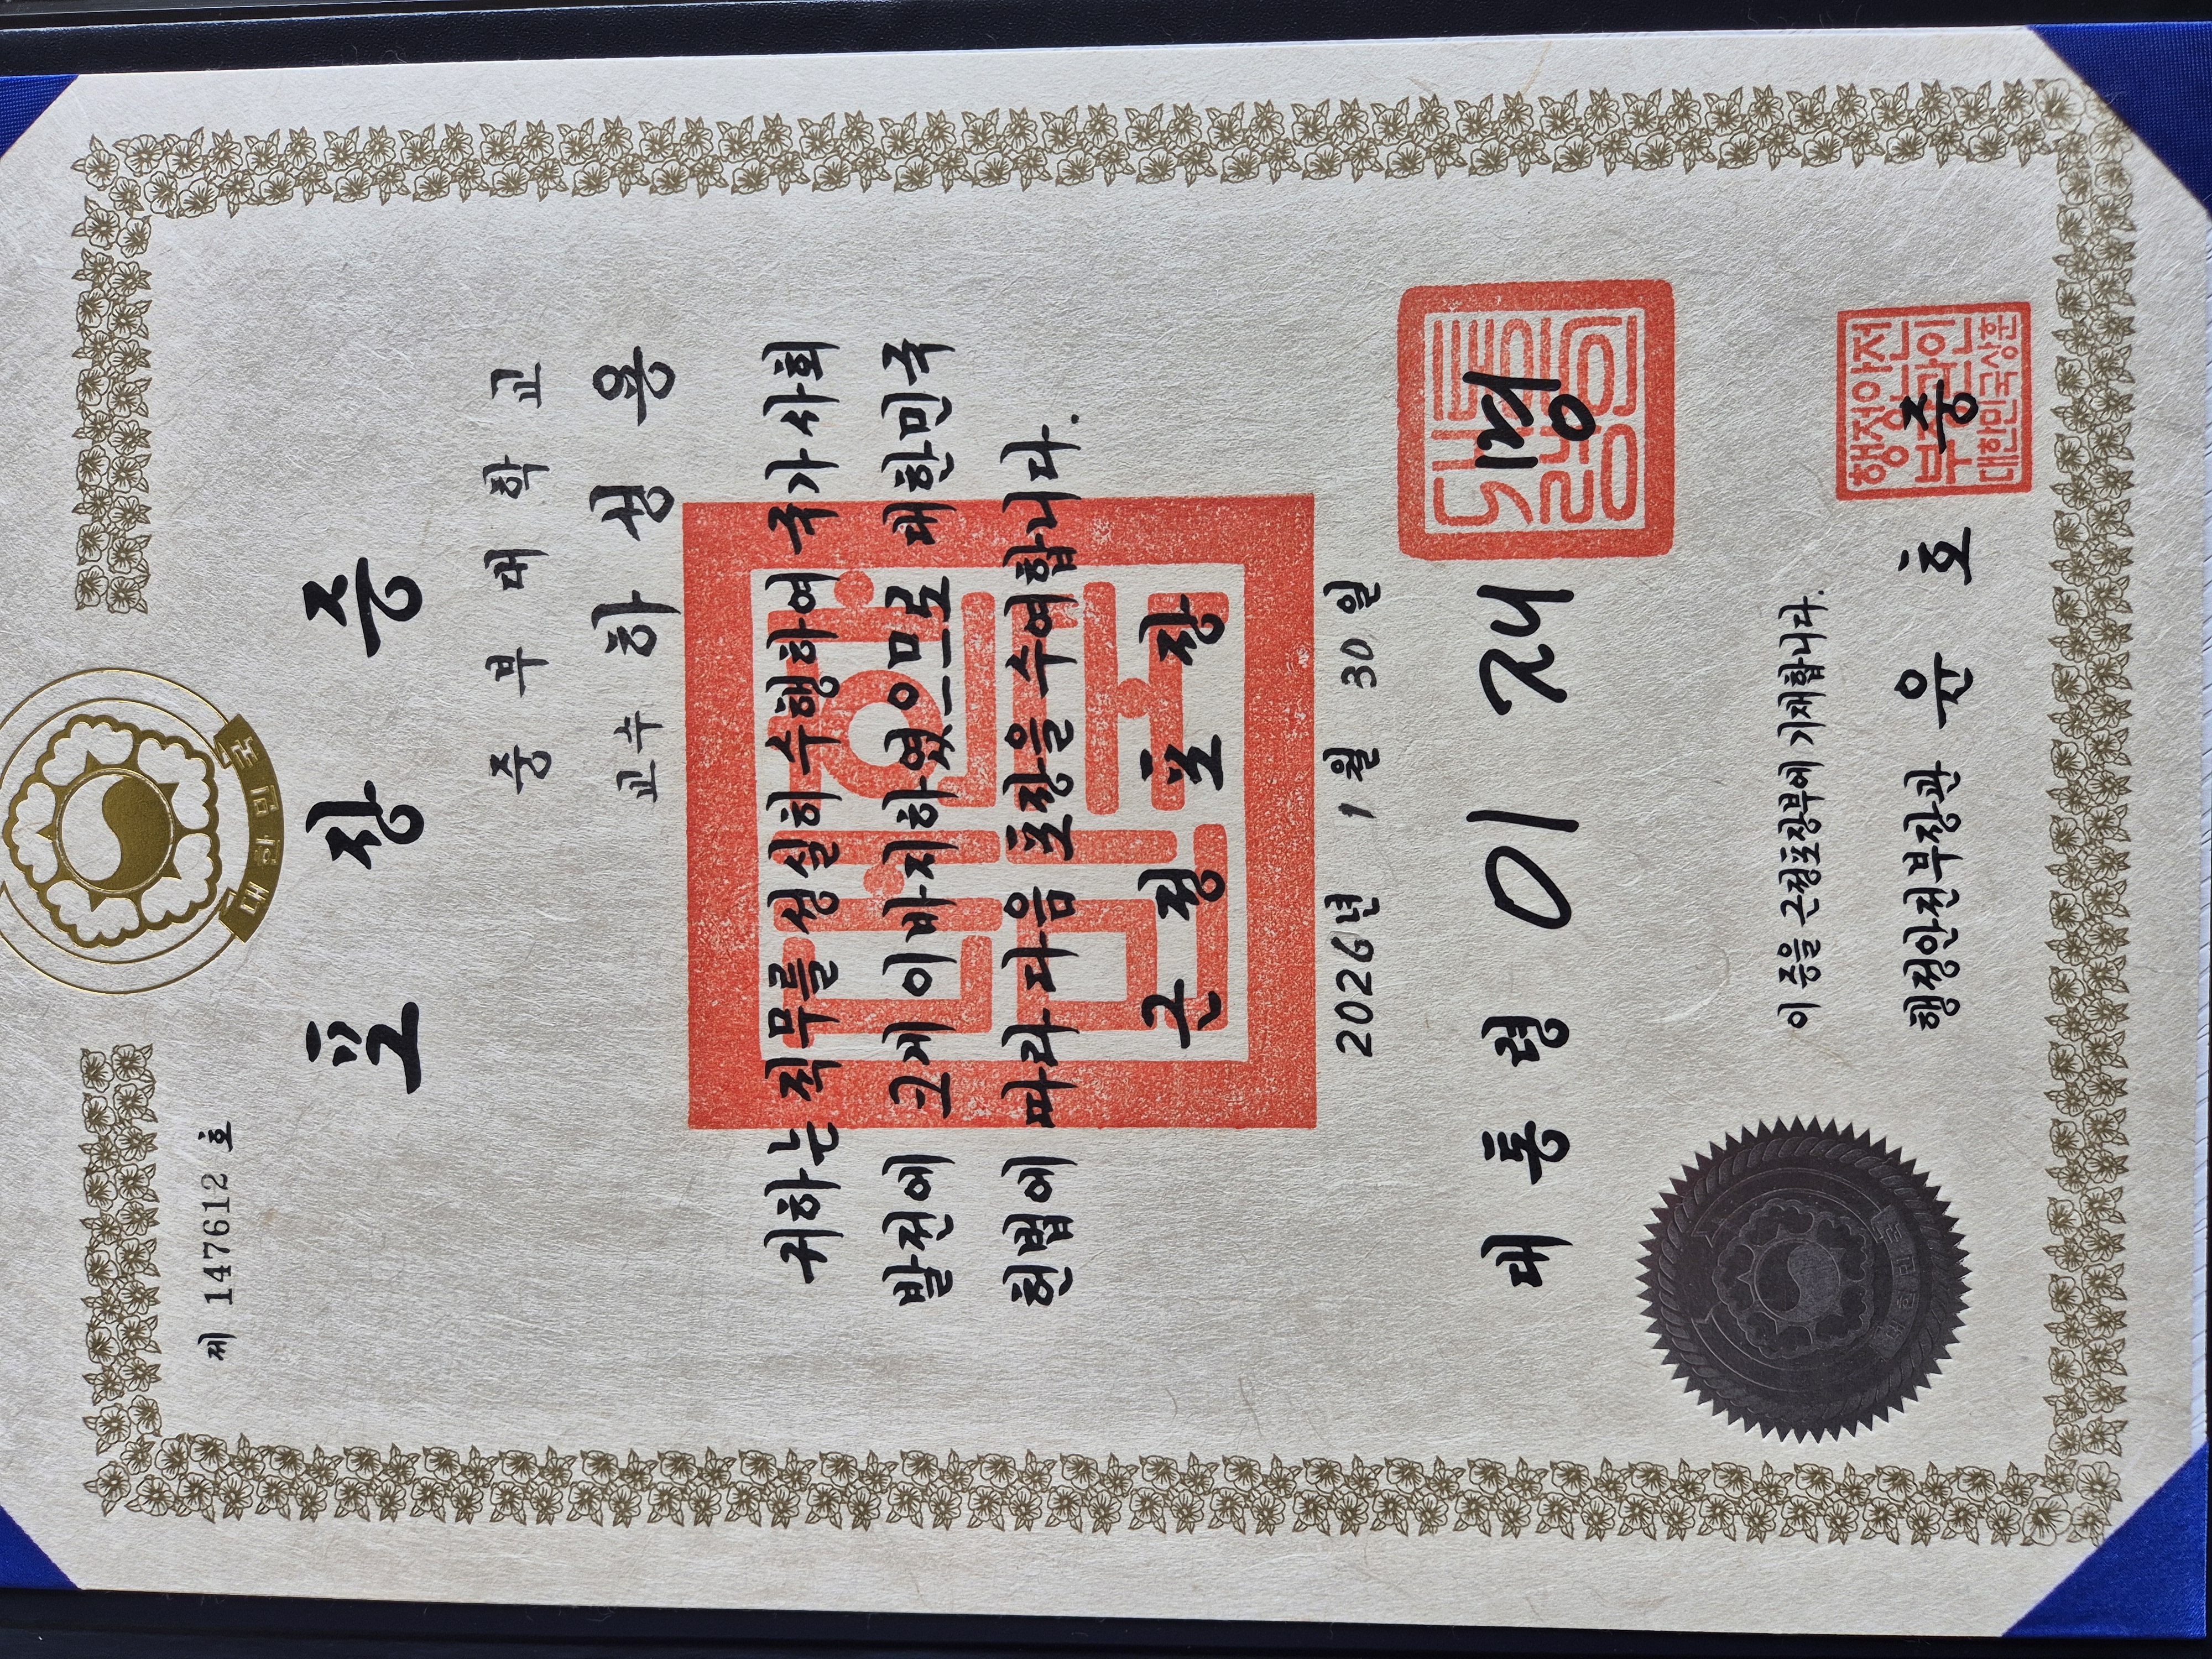 대한민국
제 147612 호
포장증
중부대학교
교수 하성용
귀하는 직무를 성실히 수행하여 국가사회
발전에 크게 이바지하였으므로 대한민국
헌법에 따라 다음 포장을 수여합니다.
근정포장
2026년 1월 30일
대통령 이재명
이 증을 근정포장부에 기재합니다.
행정안전부장관 윤호중